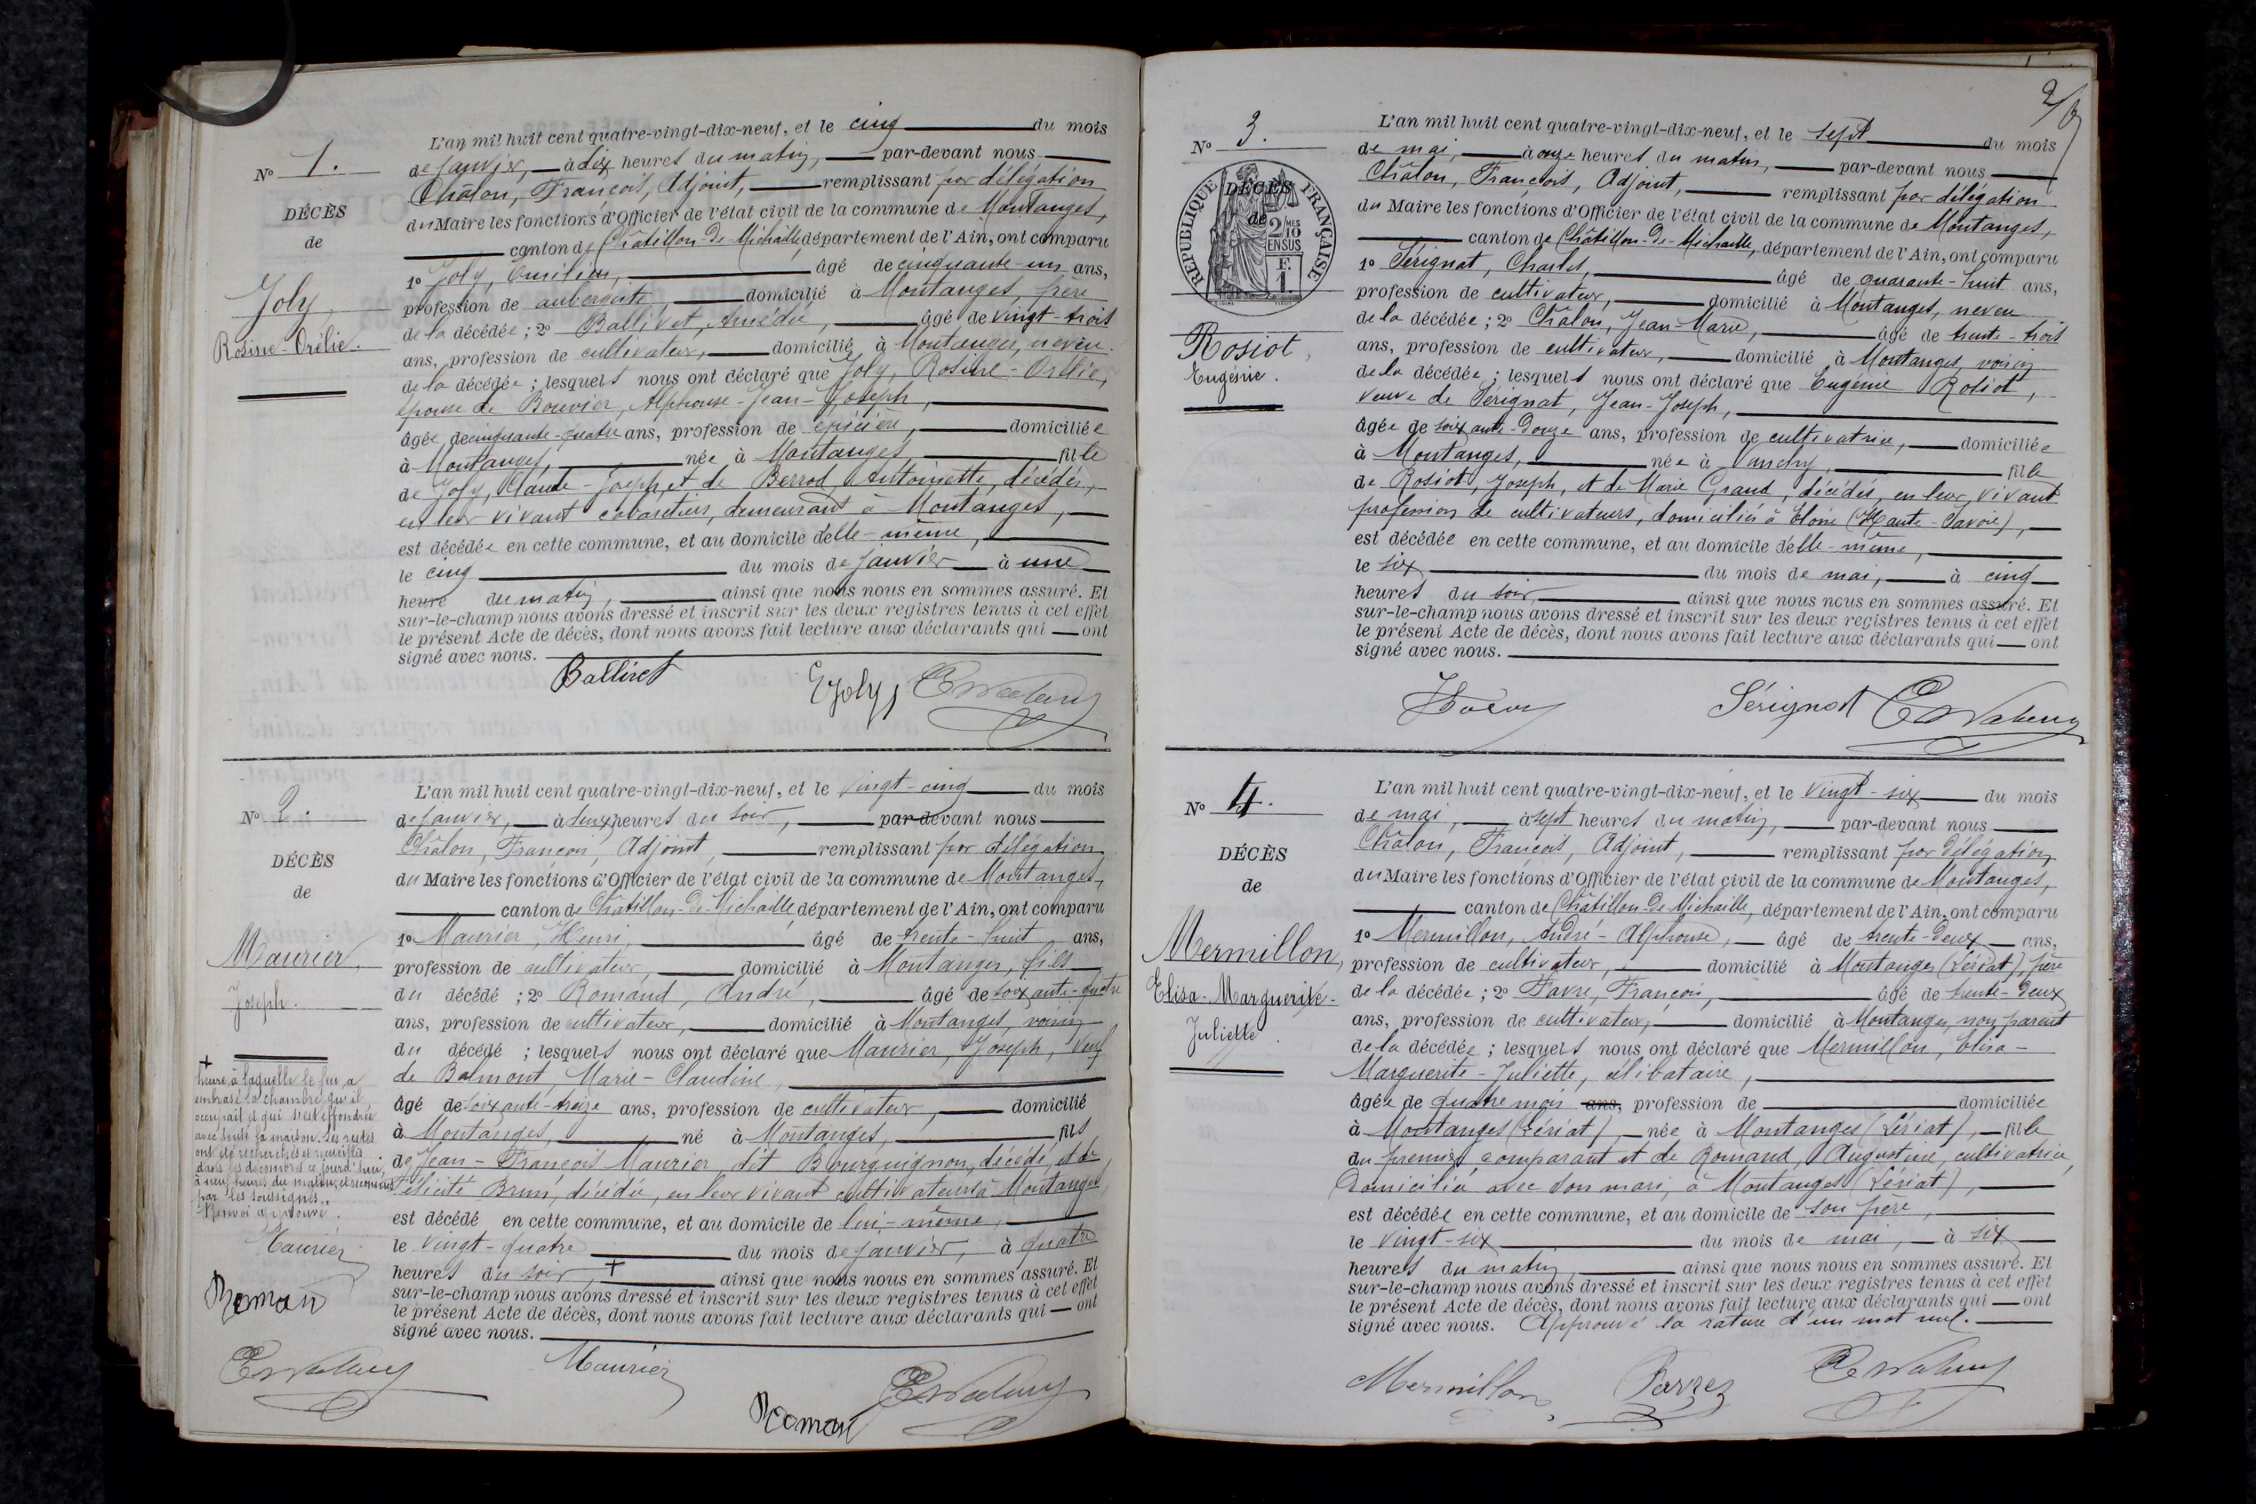 N° 1.
DÉCÈS
de
Joly,
Rosine-Orélie.
L'an mil huit cent quatre-vingt-dix-neuf, et le cinq du mois
de janvier, à dix heures du matin, par-devant nous
Châlon, François, Adjoint, remplissant par délégation
du Maire les fonctions d'Officier de l'état civil de la commune de Montanges,
canton de Châtillon-de-Michaille, département de l'Ain, ont comparu
1° Joly, Emilien, âgé de cinquante-un ans,
profession de aubergiste, domicilié à Montanges, frère
de la décédée ; 2° Ballivet, Amédée, âgé de vingt-trois
ans, profession de cultivateur, domicilié à Montanges, neveu
de la décédée ; lesquels nous ont déclaré que Joly, Rosine-Orélie,
épouse de Bouvier, Alphonse-Jean-Joseph,
âgée de cinquante-quatre ans, profession de épicière, domiciliée
à Montanges, née à Montanges, fille
de Joly, Claude-Joseph, et de Berrod, Antoinette, décédés,
en leur vivant cabaretiers, demeurant à Montanges,
est décédée en cette commune, et au domicile d'elle-même,
le cinq du mois de janvier à une
heure du matin, ainsi que nous nous en sommes assuré. Et
sur-le-champ nous avons dressé et inscrit sur les deux registres tenus à cet effet
le présent Acte de décès, dont nous avons fait lecture aux déclarants qui ont
signé avec nous.
Ballivet EJoly
N° 2.
DÉCÈS
de
Maurier,
Joseph.
L'an mil huit cent quatre-vingt-dix-neuf, et le vingt-cinq du mois
de janvier, à deux heures du soir, par-devant nous
Châlon, François, Adjoint, remplissant par délégation
du Maire les fonctions d'Officier de l'état civil de la commune de Montanges,
canton de Châtillon-de-Michaille, département de l'Ain, ont comparu
1° Maurier, Henri, âgé de trente-huit ans,
profession de cultivateur, domicilié à Montanges, fils
du décédé ; 2° Romand, André, âgé de soixante-quatre
ans, profession de cultivateur, domicilié à Montanges, voisin
du décédé ; lesquels nous ont déclaré que Maurier, Joseph, veuf
de Balmont, Marie-Claudine,
âgé de soixante-treize ans, profession de cultivateur, domicilié
à Montanges, né à Montanges, fils
de Jean-François Maurier, dit Bourguignon, décédé, et de
Félicité Brun, décédée, en leur vivant cultivateurs à Montanges
est décédé en cette commune, et au domicile de lui-même,
le vingt-quatre du mois de janvier, à quatre
heures du soir, + ainsi que nous nous en sommes assuré. Et
sur-le-champ nous avons dressé et inscrit sur les deux registres tenus à cet effet
le présent Acte de décès, dont nous avons fait lecture aux déclarants qui ont
signé avec nous.
+
heure à laquelle le feu a
embrasé la chambre qu'il
occupait et qui s'est effondrée
avec toute sa maison. Ses restes
ont été recherchés et recueillis
dans les décombres ce jourd'hui,
à neuf heures du matin, et reconnus
par les soussignés.
Renvoi approuvé.
Maurier
Roman
Maurier
Roman
2
N° 3.
RÉPUBLIQUE FRANÇAISE
2/10 EN SUS
F.
1.
DÉCÈS
de
Rosiot,
Eugénie.
L'an mil huit cent quatre-vingt-dix-neuf, et le sept du mois
de mai, à onze heures du matin, par-devant nous
Châlon, François, Adjoint, remplissant par délégation
du Maire les fonctions d'Officier de l'état civil de la commune de Montanges,
canton de Châtillon-de-Michaille, département de l'Ain, ont comparu
1° Sérignat, Charles, âgé de quarante-huit ans,
profession de cultivateur, domicilié à Montanges, neveu
de la décédée ; 2° Châlon, Jean-Marie, âgé de trente-trois
ans, profession de cultivateur, domicilié à Montanges, voisin
de la décédée ; lesquels nous ont déclaré que Eugénie Rosiot,
veuve de Sérignat, Jean-Joseph,
âgée de soixante-douze ans, profession de cultivatrice, domiciliée
à Montanges, née à Vanchy, fille
de Rosiot, Joseph, et de Marie Grand, décédés, en leur vivant
profession de cultivateurs, domiciliés à Eloise (Haute-Savoie),
est décédée en cette commune, et au domicile d'elle-même,
le six du mois de mai, à cinq
heures du soir, ainsi que nous nous en sommes assuré. Et
sur-le-champ nous avons dressé et inscrit sur les deux registres tenus à cet effet
le présent Acte de décès, dont nous avons fait lecture aux déclarants qui ont
signé avec nous.
Sérignat
N° 4.
DÉCÈS
de
Mermillon,
Elisa-Marguerite-
Juliette.
L'an mil huit cent quatre-vingt-dix-neuf, et le vingt-six du mois
de mai, à sept heures du matin, par-devant nous
Châlon, François, Adjoint, remplissant par délégation
du Maire les fonctions d'Officier de l'état civil de la commune de Montanges,
canton de Châtillon-de-Michaille, département de l'Ain, ont comparu
1° Mermillon, André-Alphonse, âgé de trente-deux ans,
profession de cultivateur, domicilié à Montanges (Lériat), père
de la décédée ; 2° Favre, François, âgé de trente-deux
ans, profession de cultivateur, domicilié à Montanges, non parent
de la décédée ; lesquels nous ont déclaré que Mermillon, Elisa-
Marguerite-Juliette, célibataire,
âgée de quatre mois ans, profession de domiciliée
à Montanges (Lériat), née à Montanges (Lériat), fille
du premier comparant et de Romand, Augustine, cultivatrice,
domiciliée avec son mari, à Montanges (Lériat),
est décédée en cette commune, et au domicile de son père,
le vingt-six du mois de mai, à six
heures du matin, ainsi que nous nous en sommes assuré. Et
sur-le-champ nous avons dressé et inscrit sur les deux registres tenus à cet effet
le présent Acte de décès, dont nous avons fait lecture aux déclarants qui ont
signé avec nous. Approuvé la rature d'un mot nul.
Mermillon